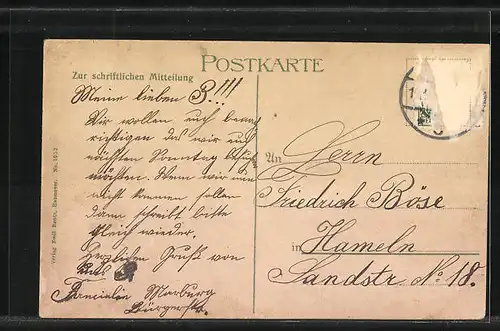 POSTKARTE
Zur schriftlichen Mitteilung
Meine lieben B.!!!
Wir wollen euch benach
richtigen da wir nächsten Sonntag
möchten. Wenn wir nun
nicht kommen sollen
dann schreibt bitte
gleich wieder.
Herzlichen Gruß von
Familie Marburg
Bürgerstr.
Verlag Hannover. No.
An
Herrn
Friedrich Böse
in Hameln
Sandstr. No. 18.